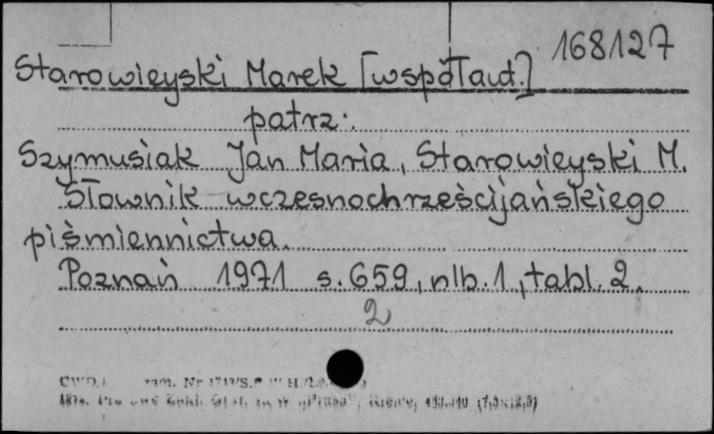 168127
Starowieyski Marek [współaut.]
patrz:
Szymusiak Jan Maria, Starowieyski M.
Słownik wczesnochrześcijańskiego
piśmiennictwa.
Poznań 1971 s. 659, nlb. 1, tabl. 2.
2
zam. Nr